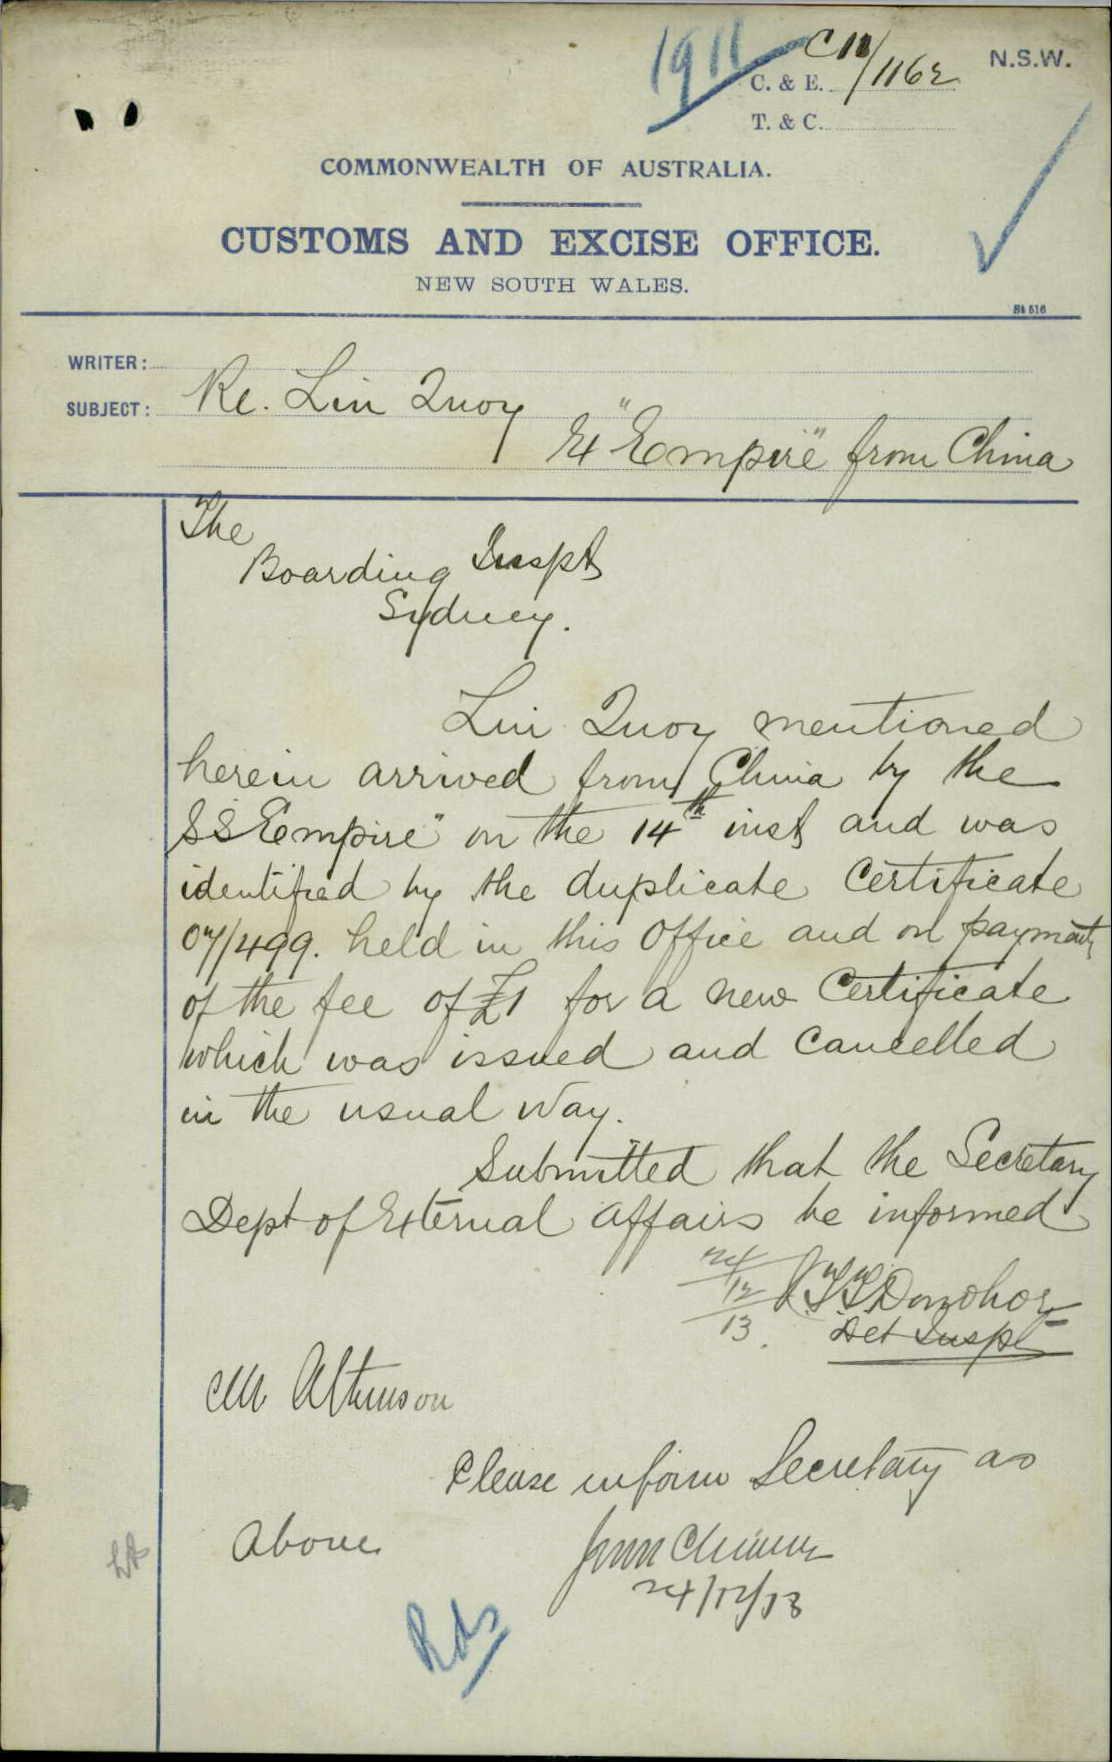 1911
C11/1162
N.S.W.
C. & E.
T. & C.
COMMONWEALTH OF AUSTRALIA.
CUSTOMS AND EXCISE OFFICE.
NEW SOUTH WALES.
St 516
WRITER:
SUBJECT: Re. Lin Quoy
Ex "Empire" from China
The
Boarding Inspt
Sydney.
Lin Quoy mentioned
herein arrived from China by the
SS Empire" on the 14th inst and was
identified by the duplicate Certificate
07/499. held in this Office and on payment
of the fee of £1 for a new Certificate
which was issued and cancelled
in the usual way.
Submitted that the Secretary
Dept of External Affairs be informed
24/12/13
Donohoe
Det Inspt
Mr Atkinson
Please inform Secretary as
above
24/12/13